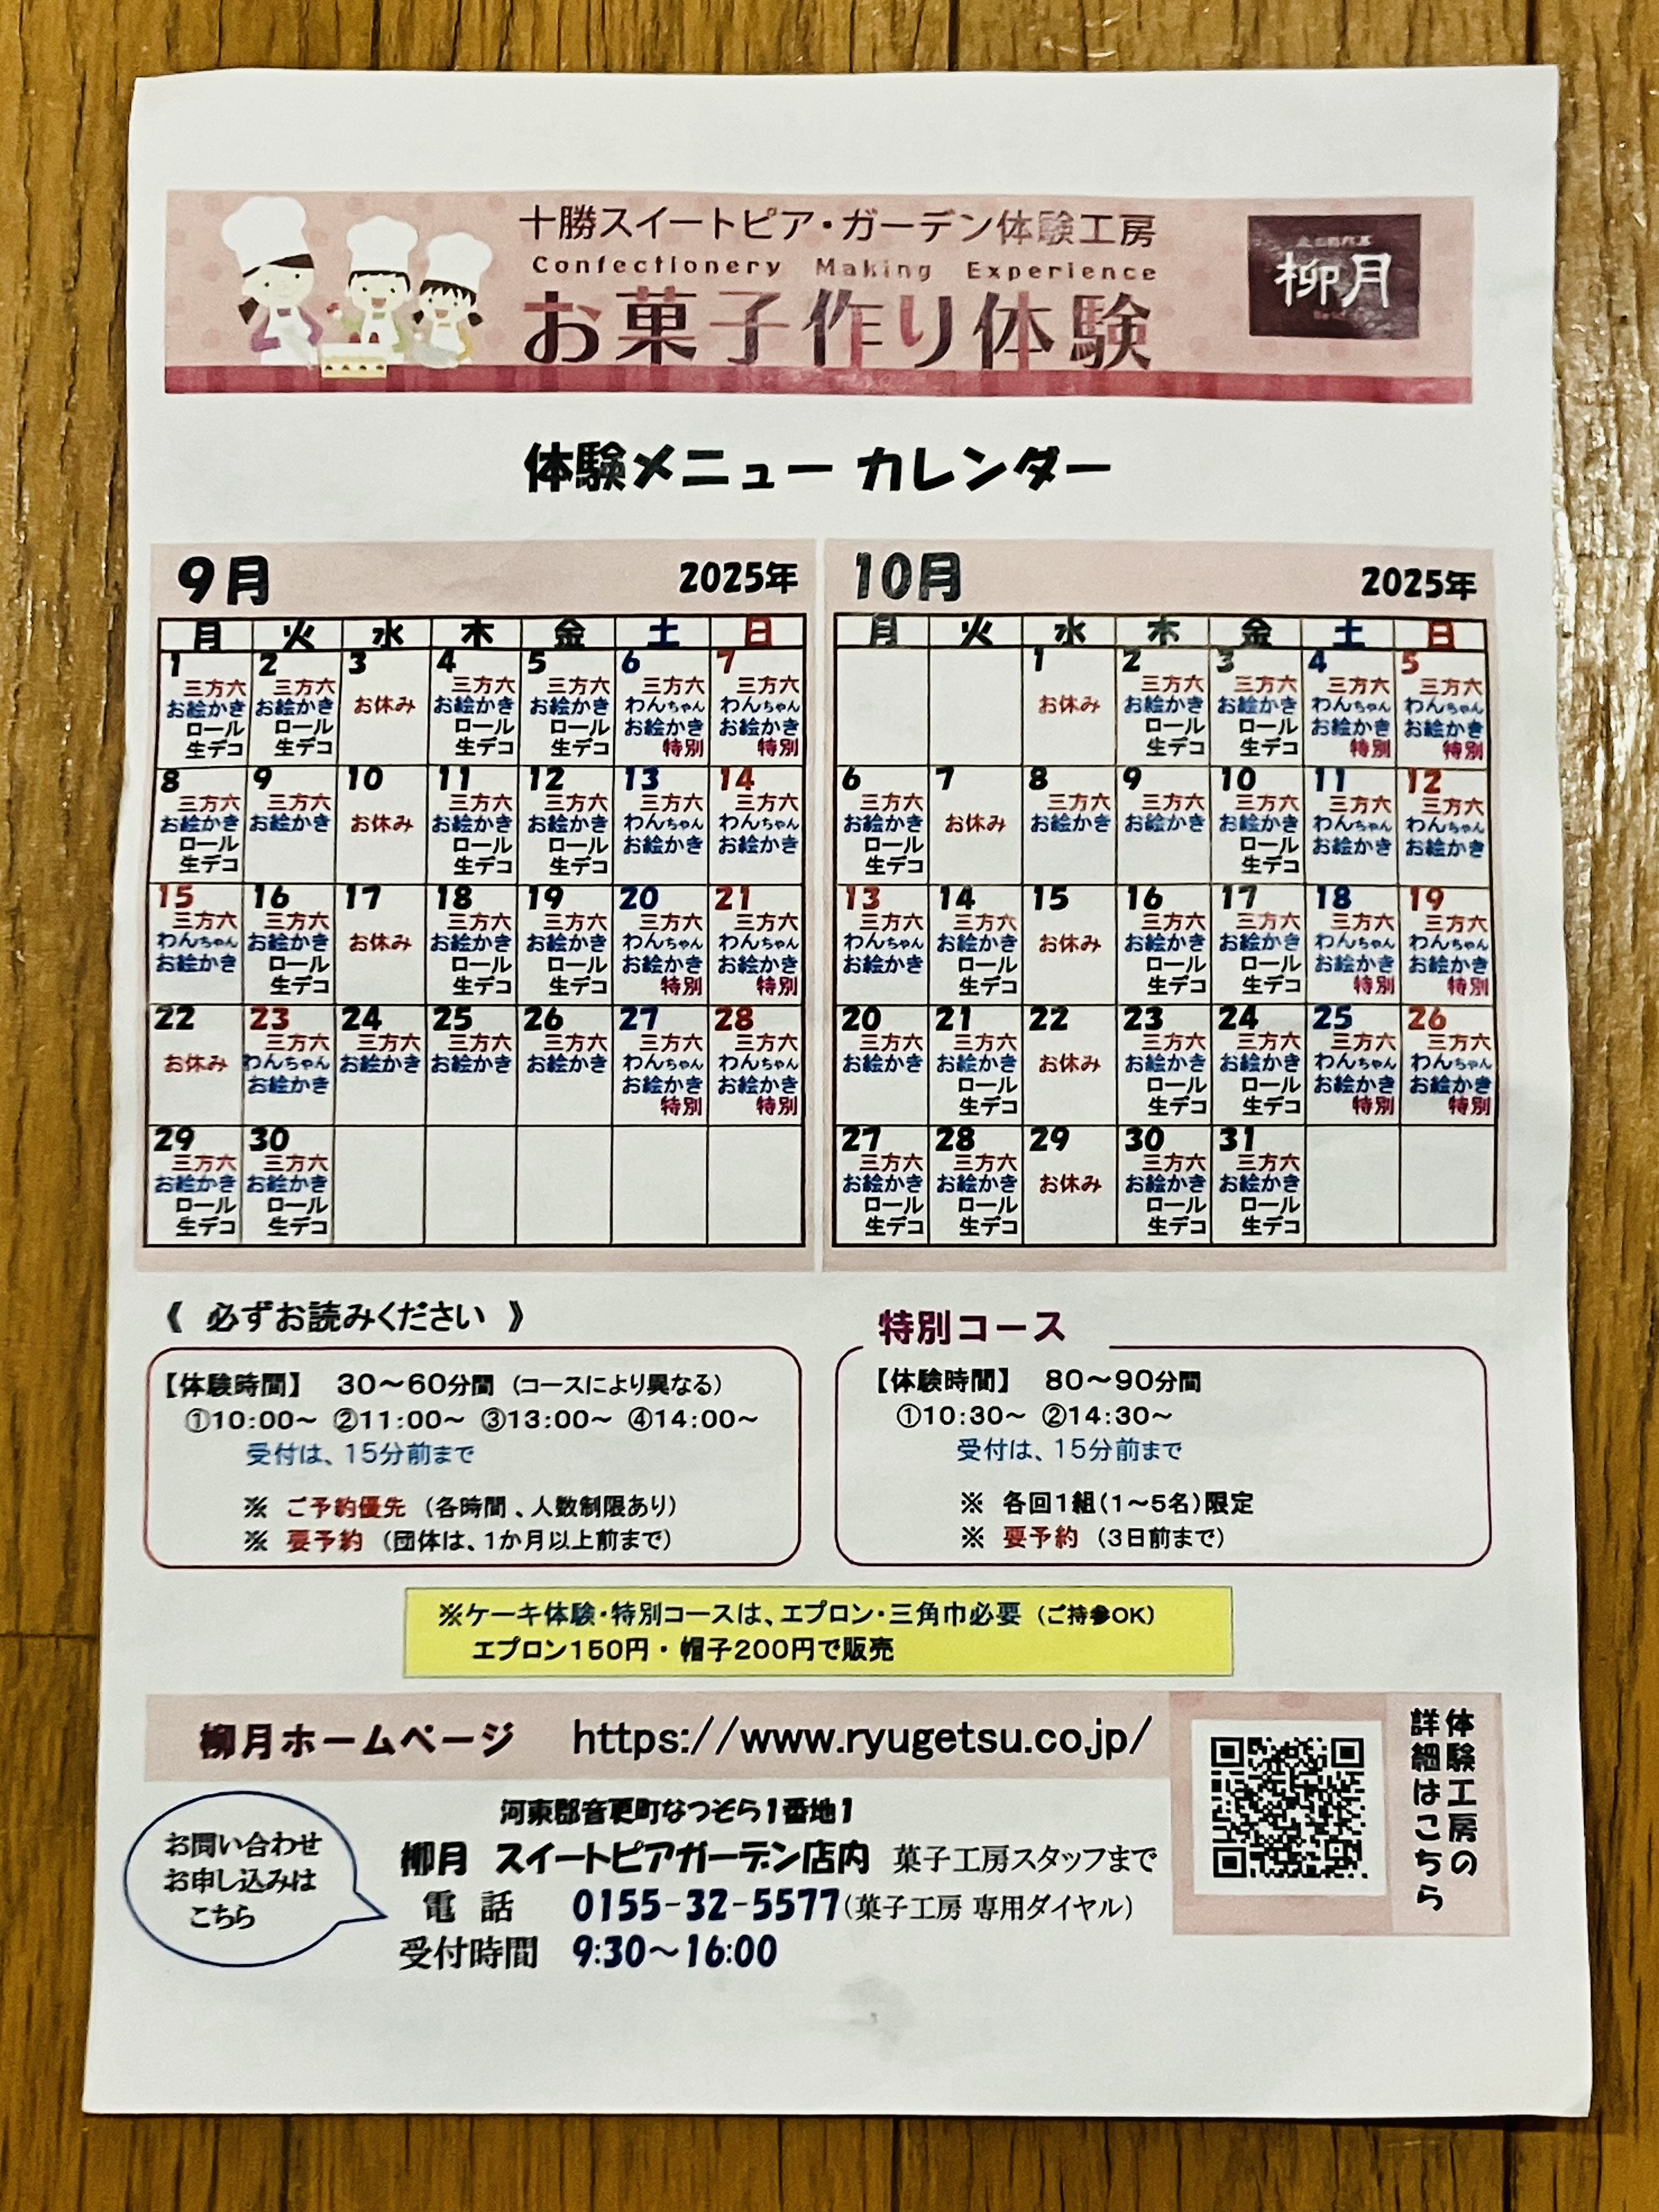 十勝スイートピア・ガーデン体験工房
Confectionery Making Experience
お菓子作り体験
柳月
体験メニュー カレンダー
9月 2025年
月 火 水 木 金 土 日
1 2 3 4 5 6 7
三方六 三方六 お休み 三方六 三方六 三方六 三方六
お絵かき お絵かき お絵かき お絵かき わんちゃん わんちゃん
ロール ロール ロール ロール お絵かき お絵かき
生デコ 生デコ 生デコ 生デコ 特別 特別
8 9 10 11 12 13 14
三方六 三方六 お休み 三方六 三方六 三方六 三方六
お絵かき お絵かき お絵かき お絵かき わんちゃん わんちゃん
ロール ロール ロール お絵かき お絵かき
生デコ 生デコ 生デコ
15 16 17 18 19 20 21
三方六 三方六 お休み 三方六 三方六 三方六 三方六
わんちゃん お絵かき お絵かき お絵かき わんちゃん わんちゃん
お絵かき ロール ロール ロール お絵かき お絵かき
生デコ 生デコ 生デコ 特別 特別
22 23 24 25 26 27 28
お休み 三方六 三方六 三方六 三方六 三方六 三方六
わんちゃん お絵かき お絵かき お絵かき わんちゃん わんちゃん
お絵かき お絵かき お絵かき
特別 特別
29 30
三方六 三方六
お絵かき お絵かき
ロール ロール
生デコ 生デコ
10月 2025年
月 火 水 木 金 土 日
1 2 3 4 5
お休み 三方六 三方六 三方六 三方六
お絵かき お絵かき わんちゃん わんちゃん
ロール ロール お絵かき お絵かき
生デコ 生デコ 特別 特別
6 7 8 9 10 11 12
三方六 お休み 三方六 三方六 三方六 三方六 三方六
お絵かき お絵かき お絵かき お絵かき わんちゃん わんちゃん
ロール ロール お絵かき お絵かき
生デコ 生デコ
13 14 15 16 17 18 19
三方六 三方六 お休み 三方六 三方六 三方六 三方六
わんちゃん お絵かき お絵かき お絵かき わんちゃん わんちゃん
お絵かき ロール ロール ロール お絵かき お絵かき
生デコ 生デコ 生デコ 特別 特別
20 21 22 23 24 25 26
三方六 三方六 お休み 三方六 三方六 三方六 三方六
お絵かき お絵かき お絵かき お絵かき わんちゃん わんちゃん
ロール ロール ロール お絵かき お絵かき
生デコ 生デコ 生デコ 特別 特別
27 28 29 30 31
三方六 三方六 お休み 三方六 三方六
お絵かき お絵かき お絵かき お絵かき
ロール ロール ロール ロール
生デコ 生デコ 生デコ 生デコ
《 必ずお読みください 》
【体験時間】 30～60分間 (コースにより異なる)
①10:00～ ②11:00～ ③13:00～ ④14:00～
受付は、15分前まで
※ ご予約優先 (各時間、人数制限あり)
※ 要予約 (団体は、1か月以上前まで)
特別コース
【体験時間】 80～90分間
①10:30～ ②14:30～
受付は、15分前まで
※ 各回1組(1～5名)限定
※ 要予約 (3日前まで)
※ケーキ体験・特別コースは、エプロン・三角巾必要 (ご持参OK)
エプロン150円・帽子200円で販売
柳月ホームページ https://www.ryugetsu.co.jp/
体験工房の
詳細はこちら
お問い合わせ
お申し込みは
こちら
河東郡音更町なつぞら1番地1
柳月 スイートピアガーデン店内 菓子工房スタッフまで
電 話 0155-32-5577(菓子工房 専用ダイヤル)
受付時間 9:30～16:00